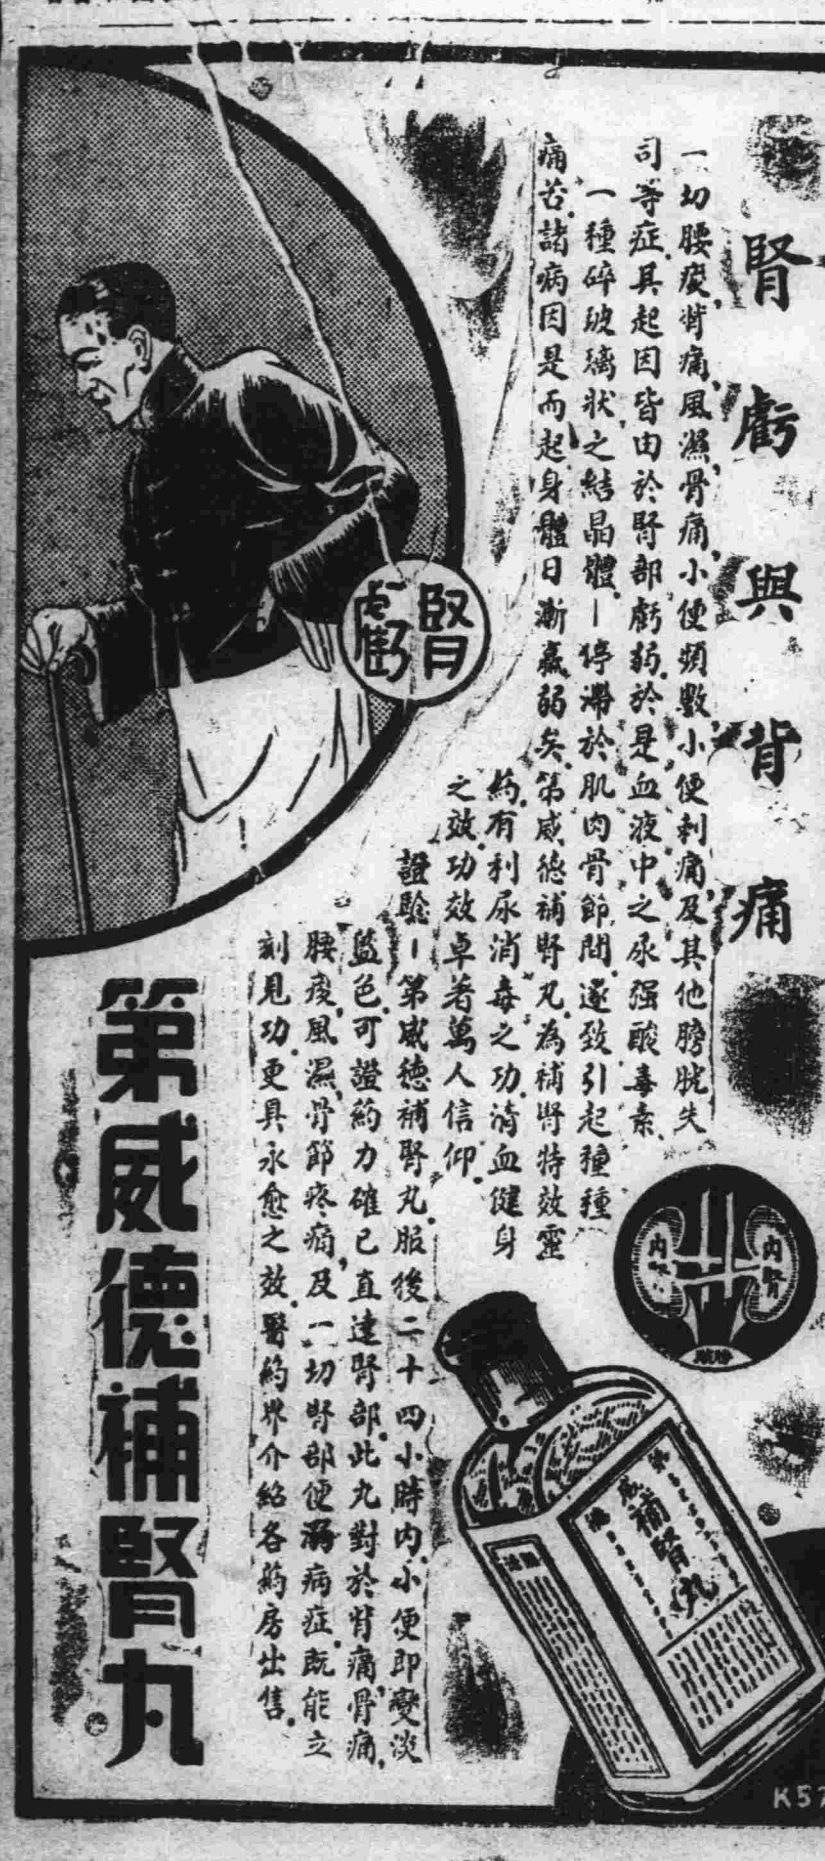 腎虧與背痛
一切腰痠背痛風濕骨痛小便頻數小便刺痛及其他膀胱失
司等症其起因皆由於腎部虧弱於是血液中之尿强酸毒素
一種碎玻璃狀之結晶體—停滯於肌肉骨節間遂致引起種種
痛苦諸病因是而起身體日漸羸弱矣第威德補腎丸為補腎特效靈
药有利尿消毒之功清血健身
之效功效卓著萬人信仰
證驗—第威德補腎丸服後二十四小時内小便即變淡
藍色可證药力確已直達腎部此丸對於背痛骨痛
腰痠風濕骨節疼痛及一切腎部便溺病症既能立
刻見功更具永愈之效醫药界介紹各药房出售
腎虧
内腎
内
膀胱
補腎丸
第威德補腎丸
K57